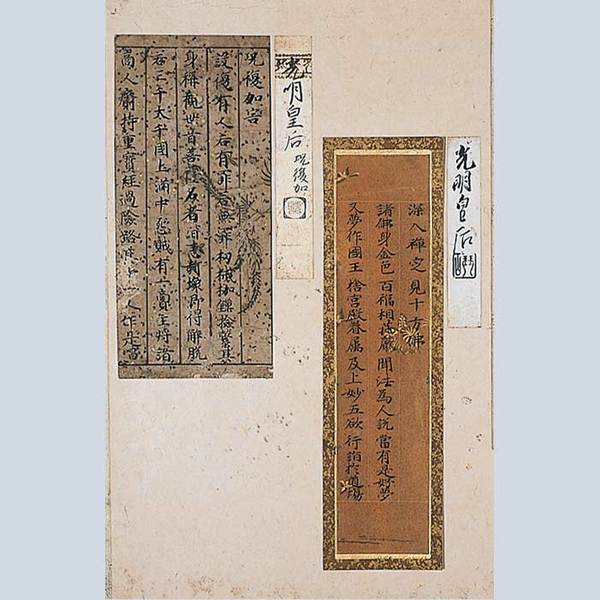 光明皇后
深入禪定見十方佛
諸佛身金色百福相莊嚴聞法為人說常有是好夢
又夢作國王捨宮殿眷屬及上妙五欲行詣於道場
光明皇后 況復加
況復加害
設復有人若有罪若無罪杻械枷鎖檢繫其
身稱觀世音菩薩名者皆悉斷壞即得解脫
若三千大千國土滿中怨賊有一商主將諸
商人齎持重寶經過險路其中一人作是唱